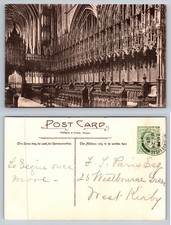 POST CARD
This Space may be used for Correspondence
The Address only to be written here
To begin once
more
F. S. Paris Esq
25 Westbourne Grove
West Kirby